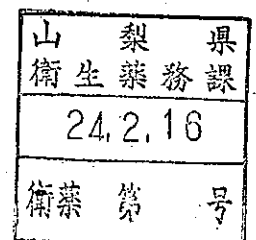 山梨県
衛生薬務課
24.2.16
衛薬 第 号